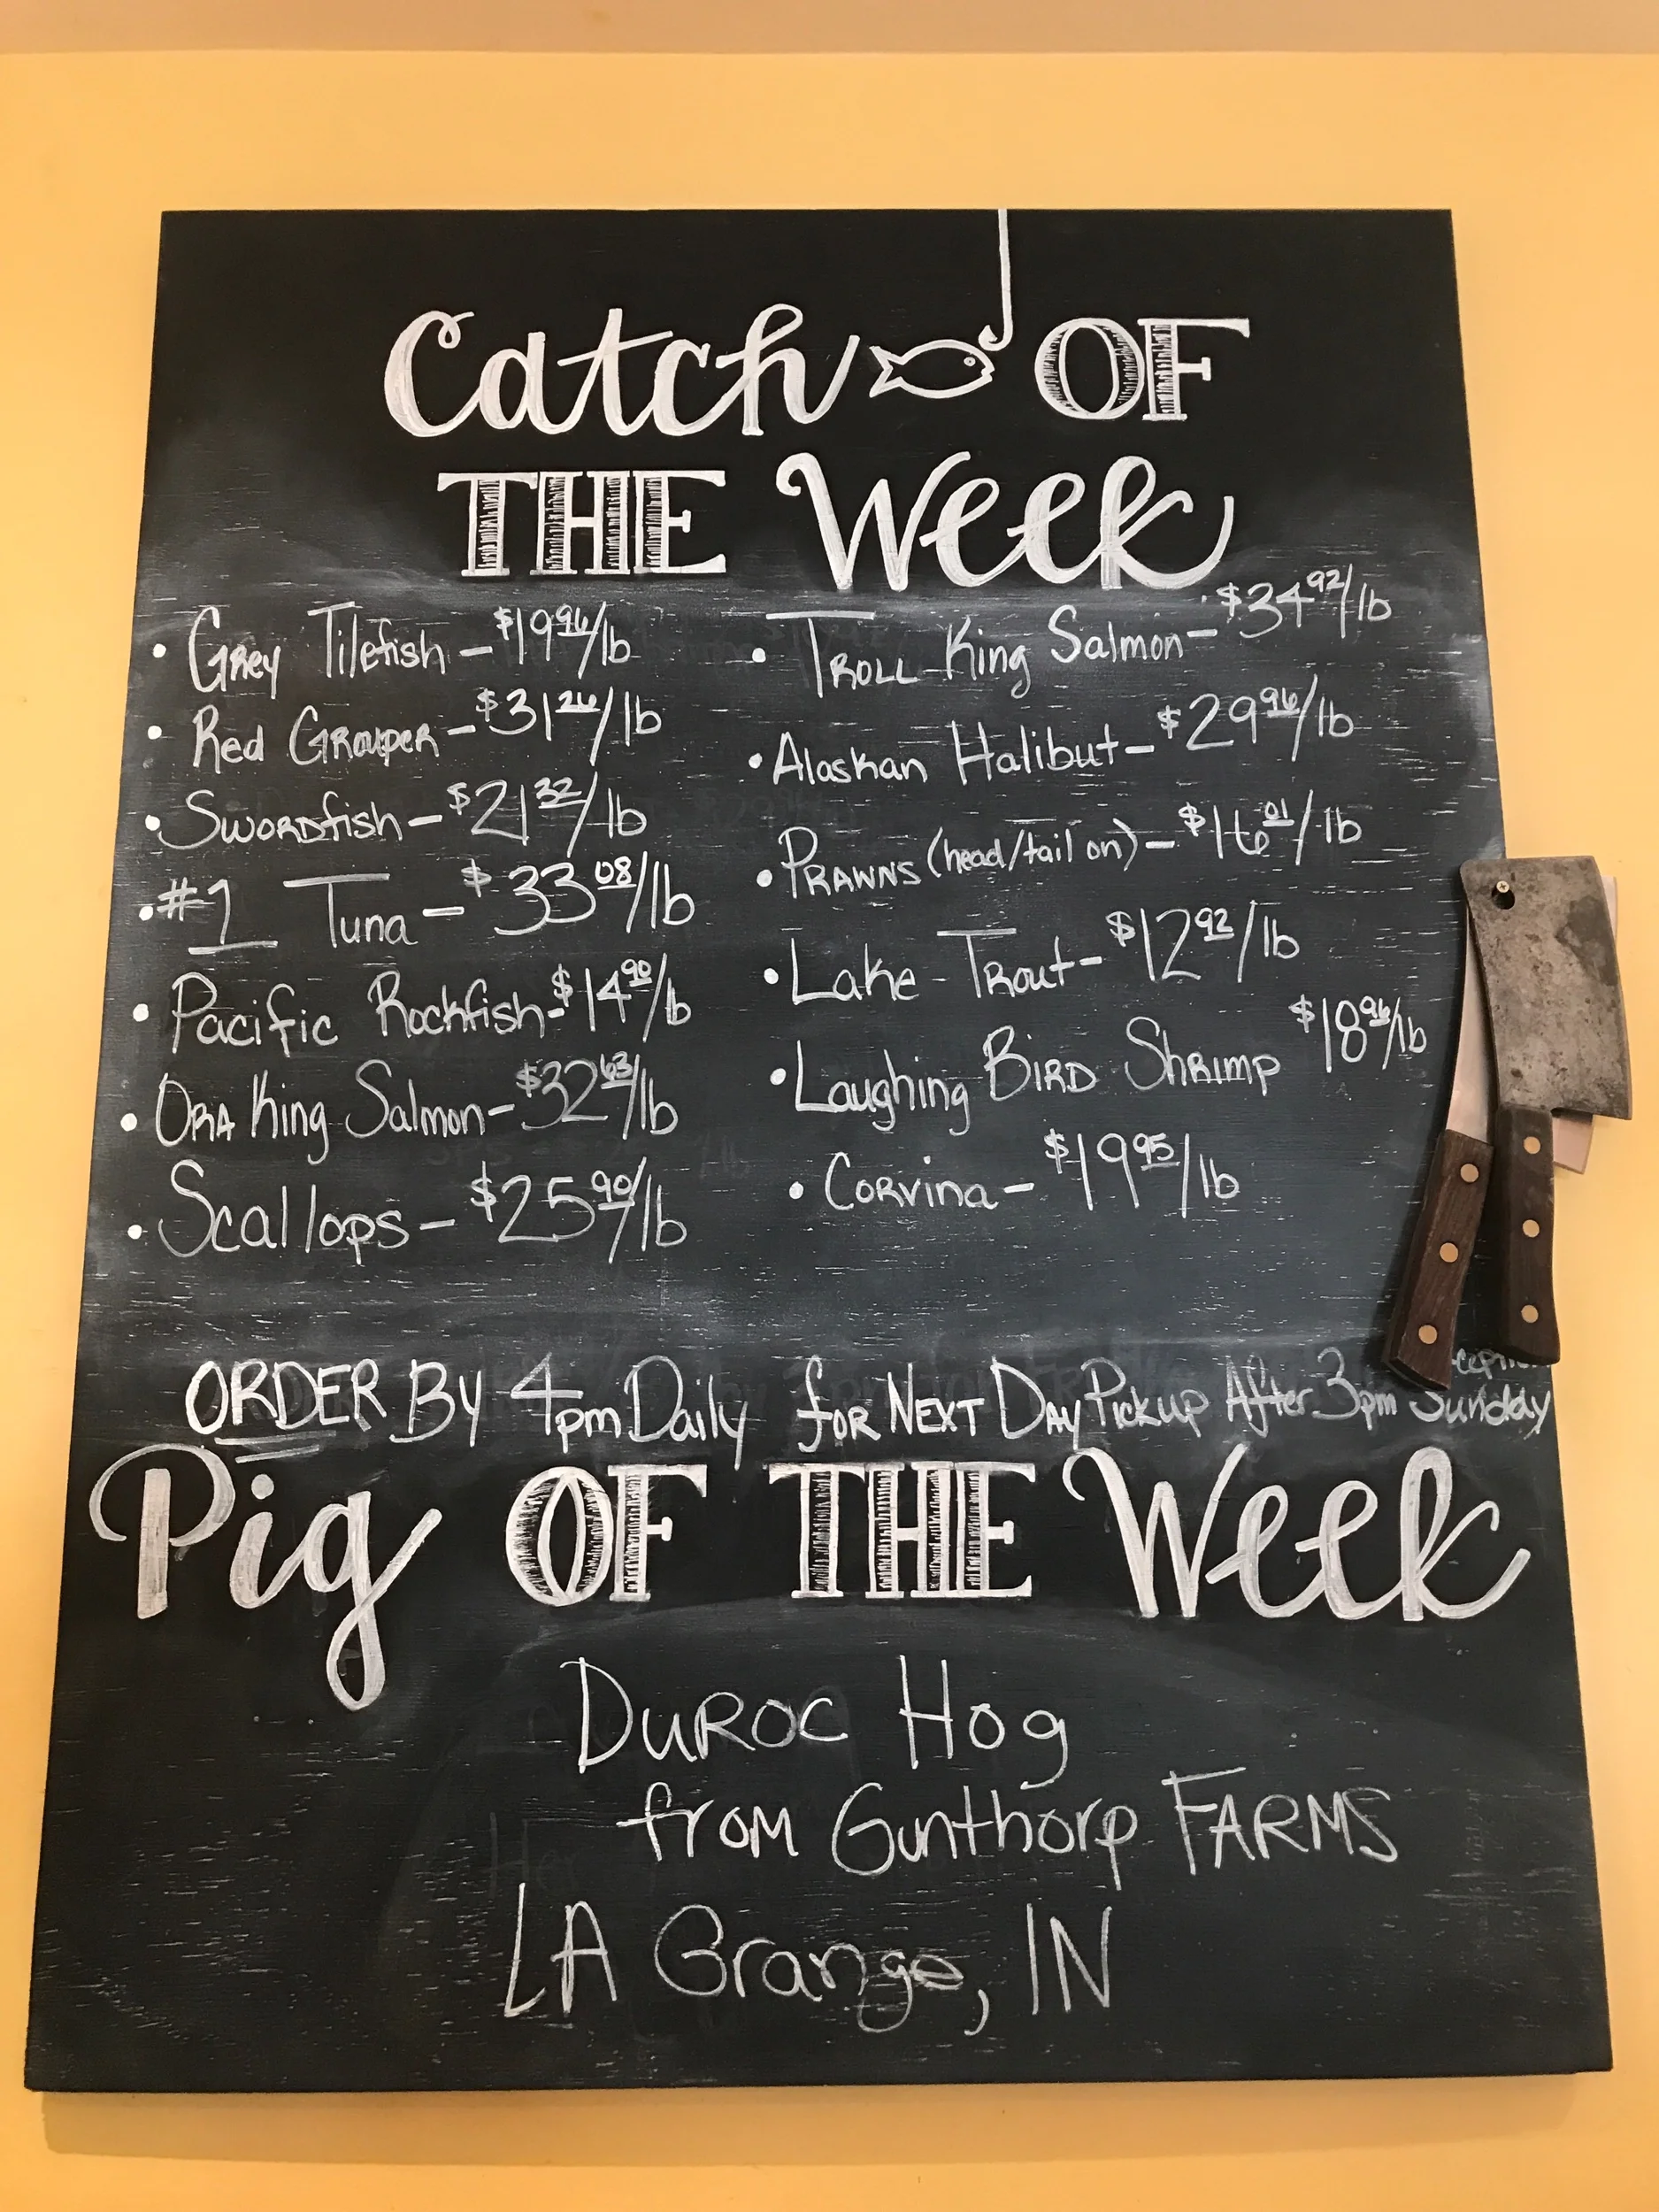 Catch OF
THE Week
• Grey Tilefish - $19.96/lb
• Red Grouper - $31.26/lb
• Swordfish - $21.32/lb
• #1 Tuna - $33.08/lb
• Pacific Rockfish - $14.90/lb
• Ora King Salmon - $32.63/lb
• Scallops - $25.90/lb
• Troll King Salmon - $34.92/lb
• Alaskan Halibut - $29.96/lb
• Prawns (head/tail on) - $16.01/lb
• Lake Trout - $12.92/lb
• Laughing Bird Shrimp $18.96/lb
• Corvina - $19.95/lb
ORDER BY 4pm Daily for NEXT DAY Pickup After 3pm Sunday
Pig OF THE Week
Duroc Hog
from Gunthorp FARMS
LA Grange, IN